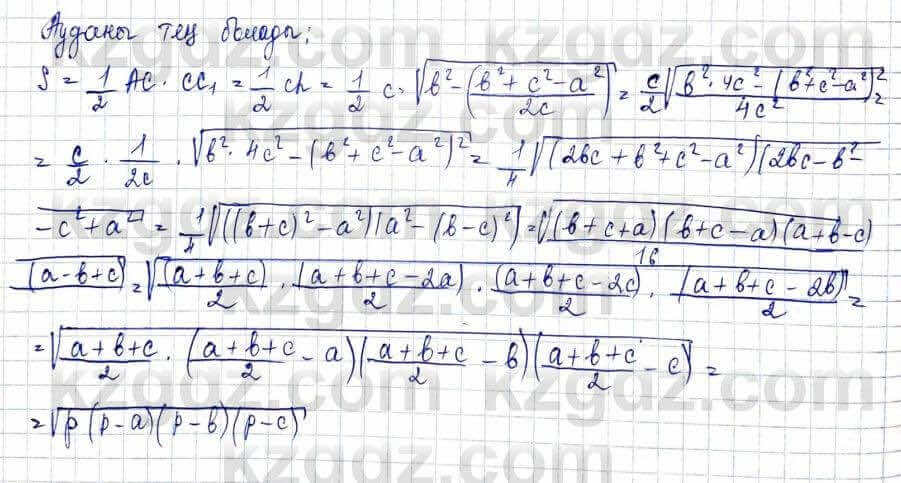 Ауданы тең болады:
S = 1/2 AC · CC₁ = 1/2 ch = 1/2 c · √(b² - (b² + c² - a²)/2c) = c/2 √((b² · 4c² - (b² + c² - a²)²)/4c²) =
= c/2 · 1/2c · √(b² · 4c² - (b² + c² - a²)²) = 1/4 √((2bc + b² + c² - a²)(2bc - b² -
- c² + a²)) = 1/4 √(((b + c)² - a²)(a² - (b - c)²)) = √((b + c + a)(b + c - a)(a + b - c)
(a - b + c)/16) = √((a + b + c)/2 · (a + b + c - 2a)/2 · (a + b + c - 2c)/2 · (a + b + c - 2b)/2) =
= √((a + b + c)/2 · ((a + b + c)/2 - a)((a + b + c)/2 - b)((a + b + c)/2 - c)) =
= √(p(p - a)(p - b)(p - c))
kzgdz.com